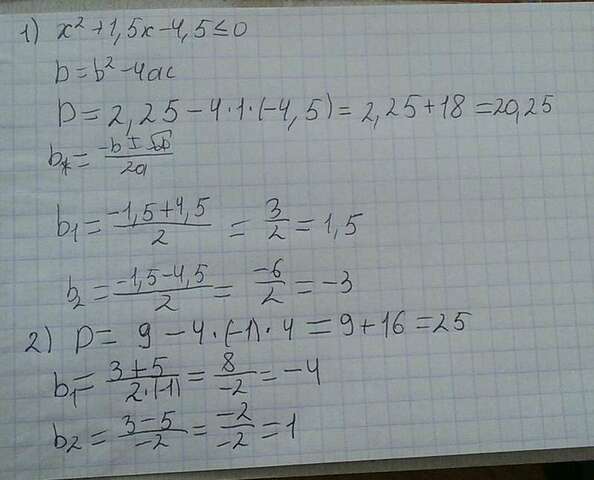 1) x² + 1,5x - 4,5 ≤ 0
D = b² - 4ac
D = 2,25 - 4·1·(-4,5) = 2,25 + 18 = 20,25
= -b ± √D / 2a
b₁ = -1,5 + 4,5 / 2 = 3/2 = 1,5
b₂ = -1,5 - 4,5 / 2 = -6/2 = -3
2) D = 9 - 4·(-1)·4 = 9 + 16 = 25
b₁ = 3 + 5 / 2·(-1) = 8/-2 = -4
b₂ = 3 - 5 / -2 = -2/-2 = 1